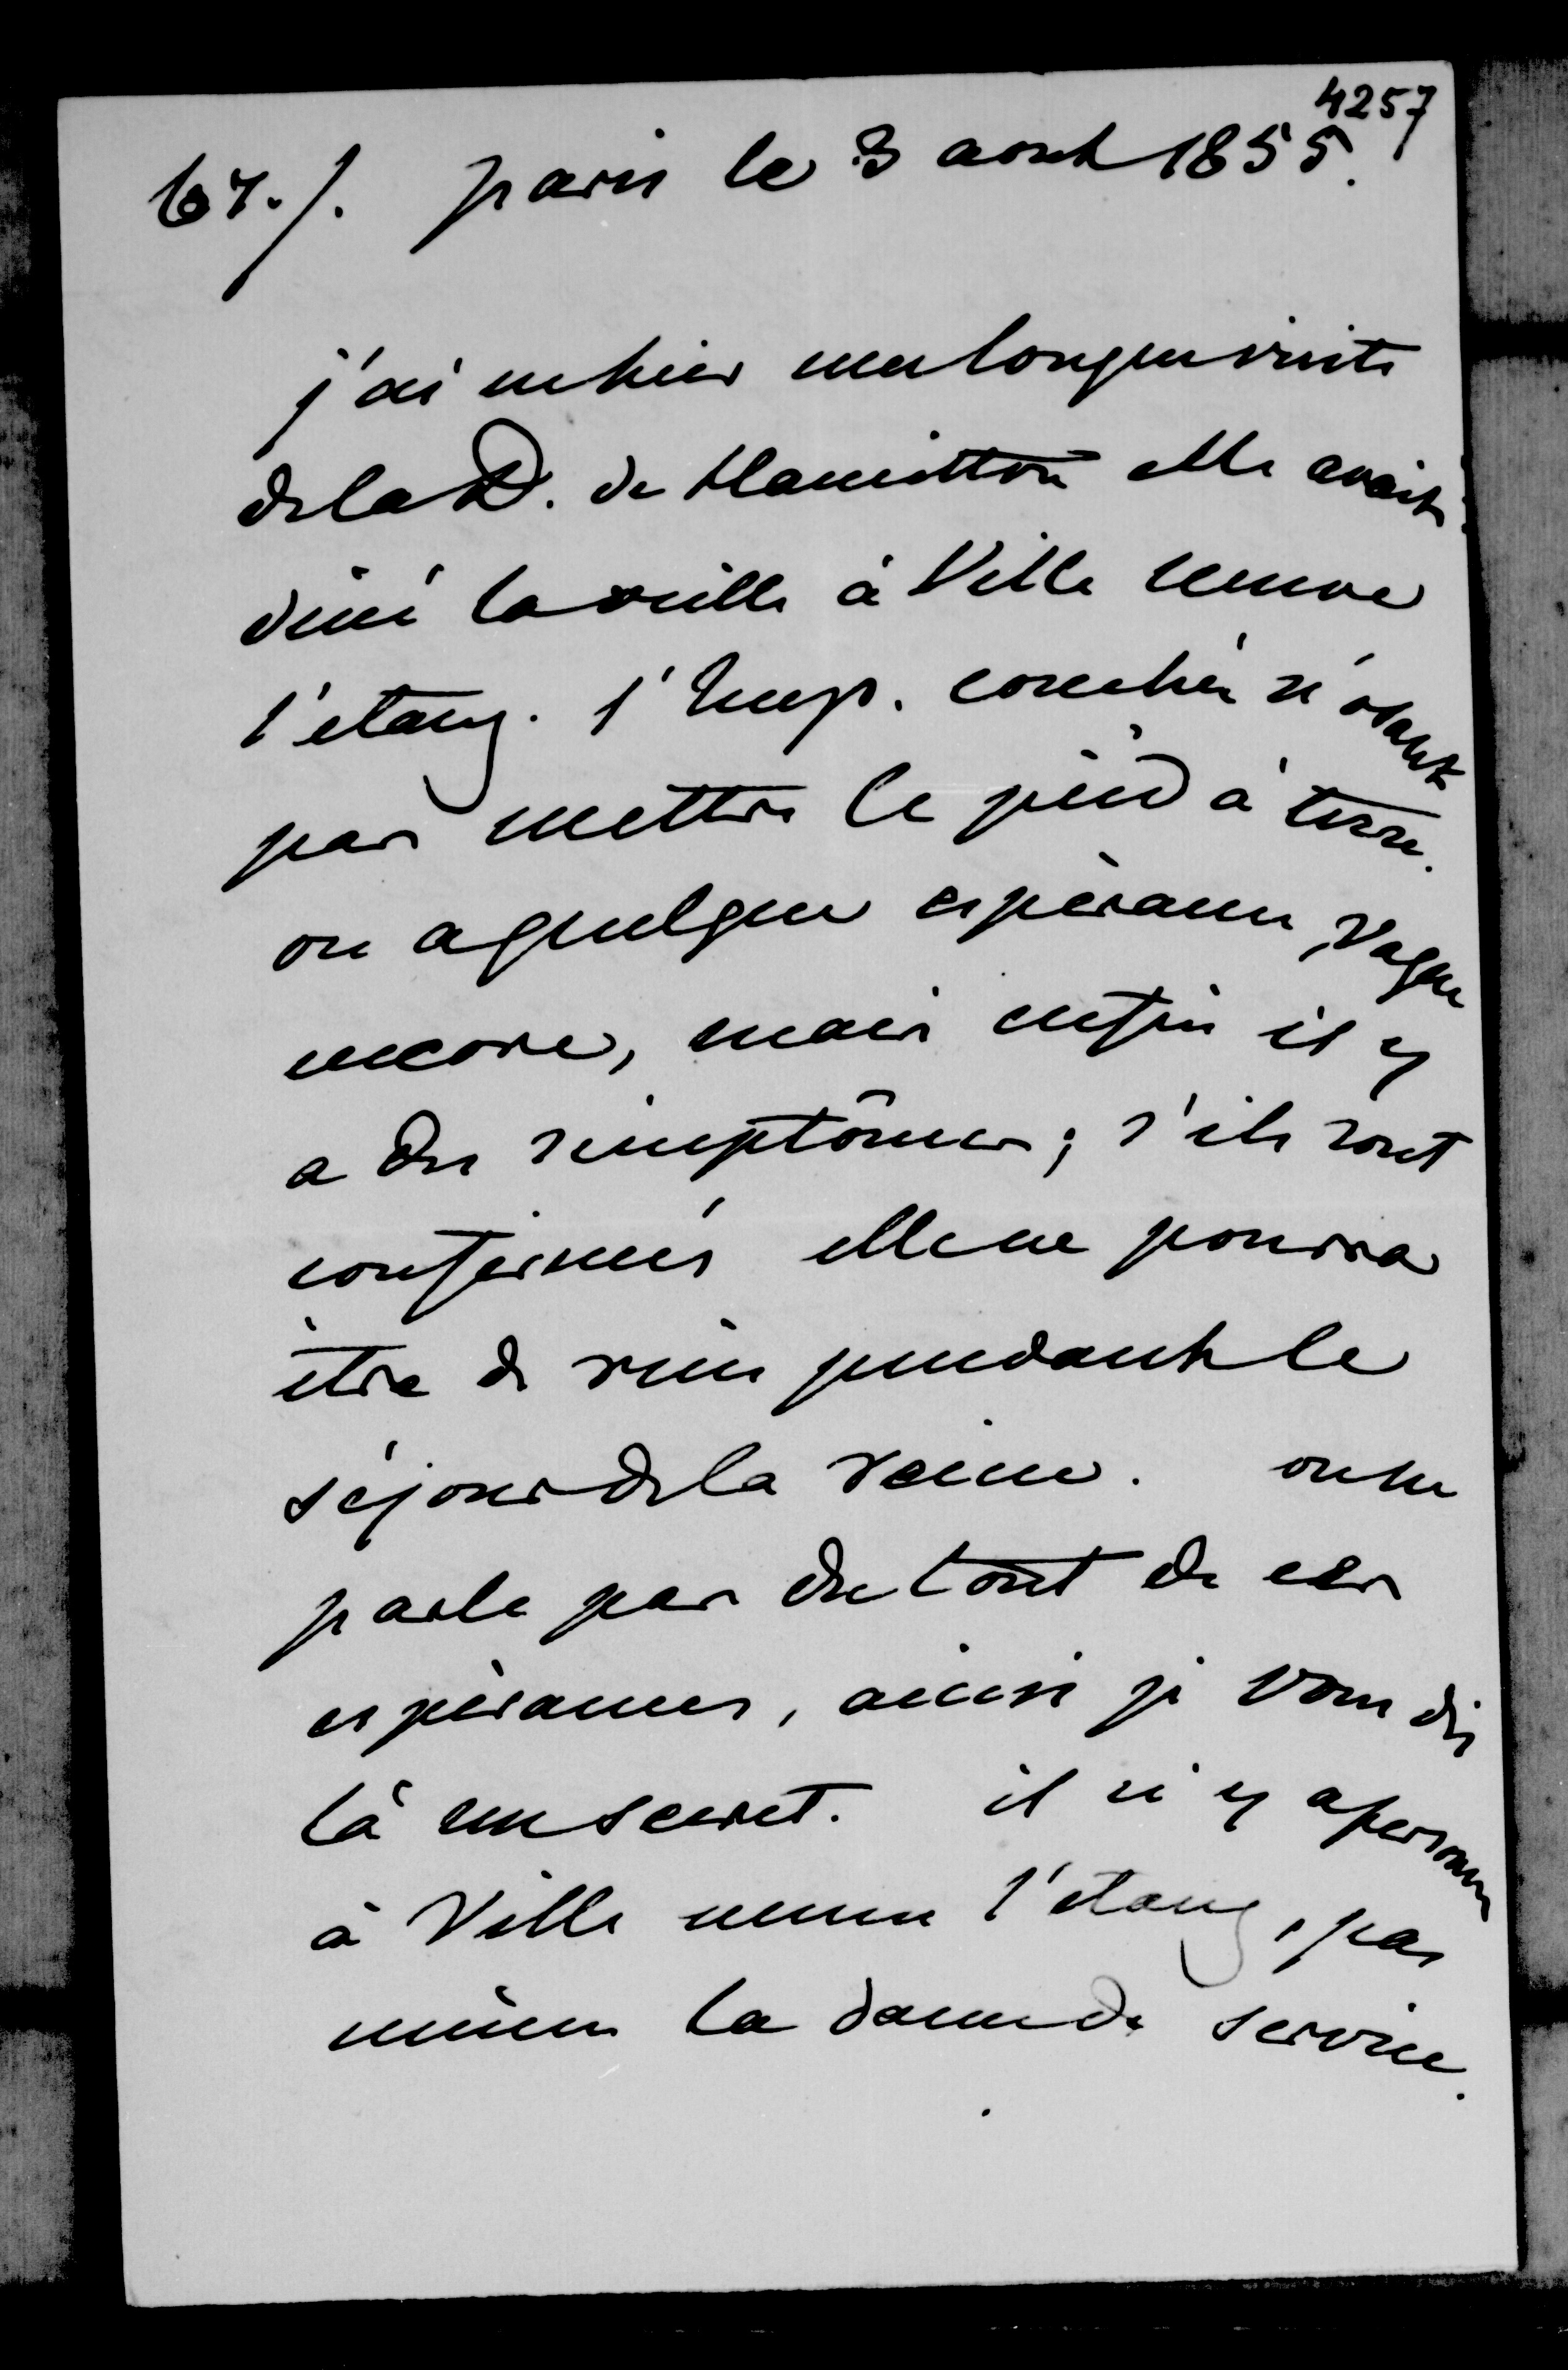 4257
67./. paris le 3 aout 1855.
j'ai eu hier une longue visite
de la D. de Hamilton elle avait
diné la veille à Ville neuve
l'etang. l'Imp. couchée n'osant
pas mettre le pied à terre.
on a quelque espèrance, vague
encore, mais enfin il y
a des simptômes; s'ils sont
confirmés elle ne pourra
être de rien pendant le
séjour de la reine. on ne
parle pas du tout de ces
espèrances, ainsi je vous dis
là un secret. il n'y a personne
à Ville neuve l'etang, pas
même la dame de service.